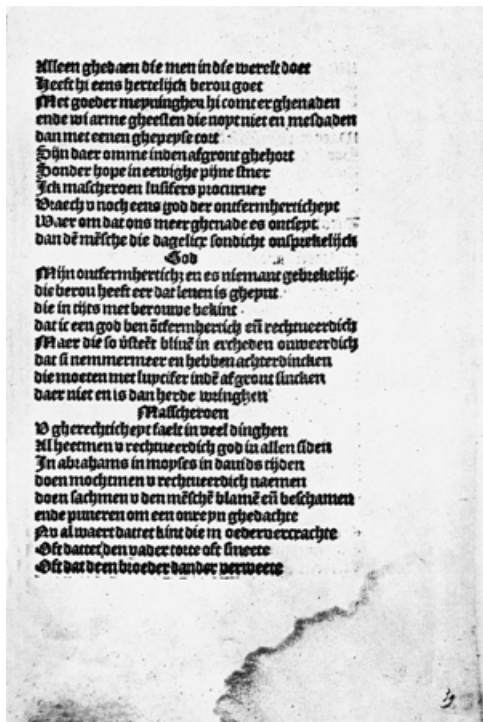 Alleen ghedaen die men in die werelt doet
Heeft hi eens hertelijck berou goet
Met goeder meyninghen hi comt er ghenaden
ende wi arme gheesten die noyt niet en mesdaden
dan met eenen ghepeyse cort
Sijn daer omme inden afgront ghestort
Sonder hope in eewighe pijne stuer
Jck mascheroen lusifers procuruer
Vraech v noch eens god der ontfermherticheyt
Waer om dat ons meer ghenade es ontseyt
dan dē mēsche die dagelicx sondicht onsprekelijck
God
Mijn ontfermhertich; en es niemant gebrekelijc
die berou heeft eer dat leuen is gheynt
die in tijts met berouwe bekint
dat ic een god ben ōtfermhertich eñ rechtueerdich
Maer die so v̄steēt bliuē in ercheden onweerdich
dat si nemmermeer en hebben achterdincken
die moeten met lucifer indē afgront sincken
daer niet en is dan herde wringhen
Masscheroen
V gherechticheyt faelt in veel dinghen
Al heetmen v rechtueerdich god in allen siden
Jn abrahams in moyses in dauids tijden
doen mochtmen v rechtueerdich naemen
doen sachmen v den mēschē blamē eñ beschamen
ende puneren om een onreyn ghedachte
Nv al waert dattet kint die moeder vercrachte
Oft dattet den vader torte oft smeete
Oft dat deen broeder dander verweete